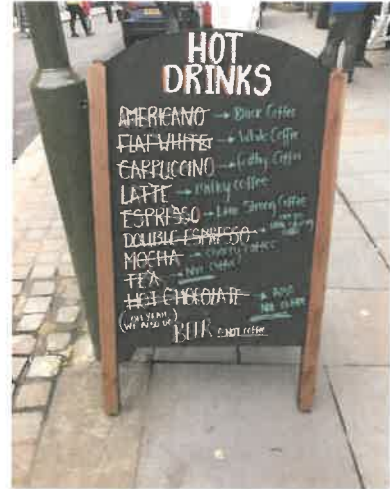 HOT
DRINKS
AMERICANO → Black Coffee
FLAT WHITE → White Coffee
CAPPUCCINO → Frothy Coffee
LATTE → Milky coffee
ESPRESSO → Strong Coffee
DOUBLE ESPRESSO →
MOCHA →
TEA → Not coffee
HOT CHOCOLATE → Also
Not coffee
(OH YEAH,
WE ALSO DO
BEER NOT coffee